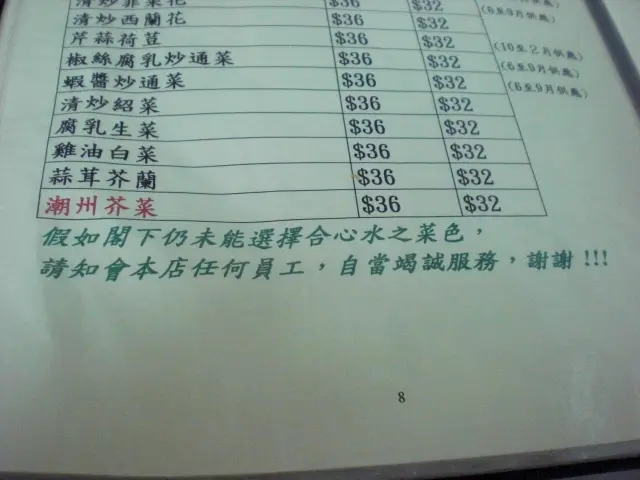 清炒韭菜花 $36 $32 (6至9月供應)
清炒西蘭花 $36 $32
芹蒜荷荳 $36 $32 (10至2月供應)
椒絲腐乳炒通菜 $36 $32 (6至9月供應)
蝦醬炒通菜 $36 $32 (6至9月供應)
清炒紹菜 $36 $32
腐乳生菜 $36 $32
雞油白菜 $36 $32
蒜茸芥蘭 $36 $32
潮州芥菜 $36 $32
假如閣下仍未能選擇合心水之菜色，
請知會本店任何員工，自當竭誠服務，謝謝!!!
8